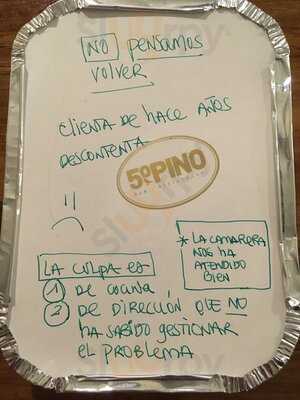 NO PENSAMOS
VOLVER
CLIENTA DE HACE AÑOS
DESCONTENTA
5ºPINO
LA CULPA ES
1 DE COCINA
2 DE DIRECCIÓN QUE NO
HA SABIDO GESTIONAR
EL PROBLEMA
* LA CAMARERA
NOS HA
ATENDIDO
BIEN